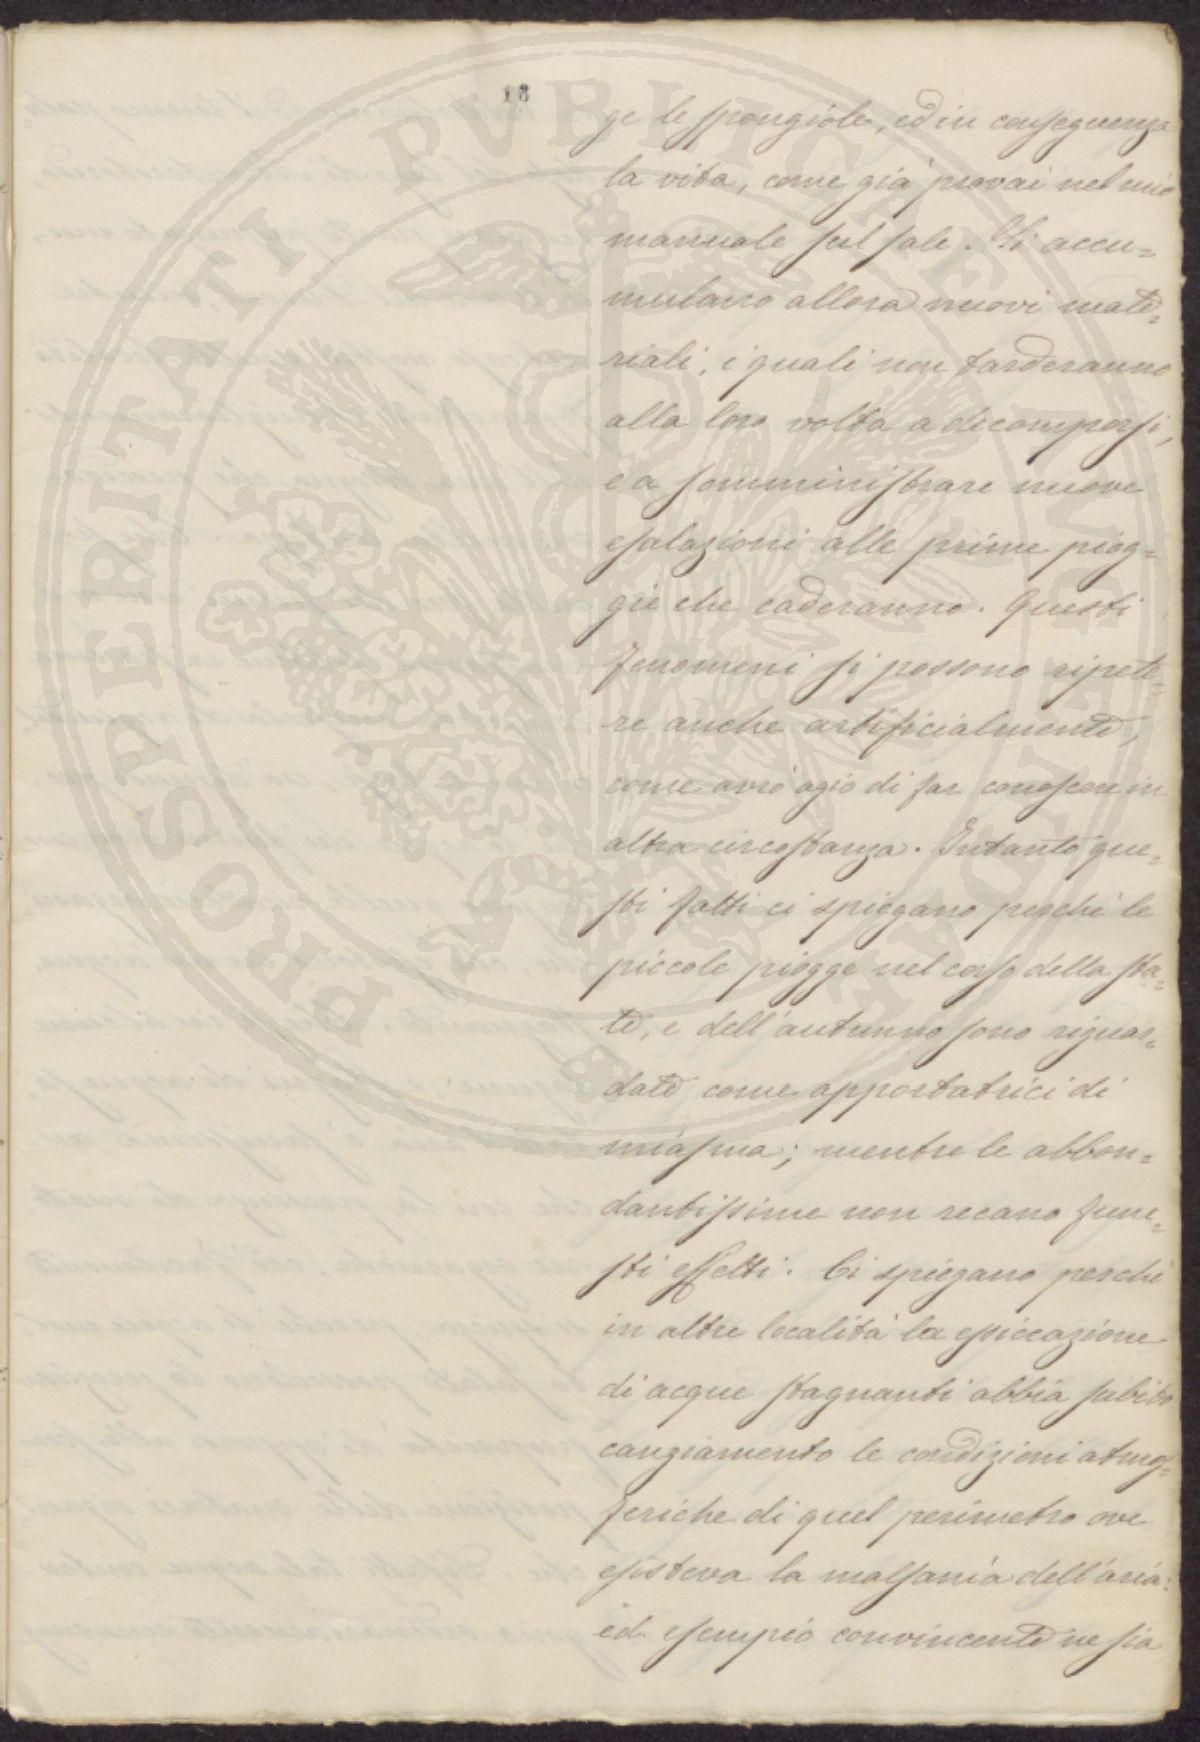 18
ge le spongiole, ed in conseguenza
la vita, come già provai nel mio
manuale sul sale. Si accu=
mulano allora nuovi mate=
riali, i quali non tarderanno
alla loro volta a decomporsi,
e a somministrare nuove
esalazioni alle prime piog=
gie che caderanno. Questi
fenomeni si possono ripete=
re anche artificialmente,
come avrò agio di far conoscere in
altra circostanza. Intanto que=
sti fatti ci spiegano perchè le
piccole piogge nel corso della sta=
te, e dell'autunno sono riguar=
date come apportatrici di
miasma; mentre le abbon=
dantissime non recano fune=
sti effetti. Ci spiegano perchè
in altre località la essiccazione
di acque stagnanti abbia subito
cangiamento le condizioni atmos=
feriche di quel perimetro ove
esisteva la malsania dell'aria:
ed esempio convincente ne sia
PROSPERITATI PVBLICAE AVGENDAE